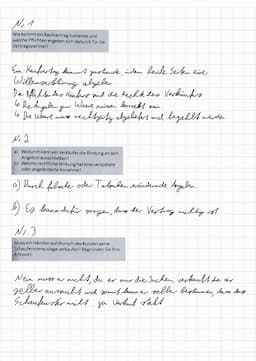 Nr. 1
Wie kommt ein Kaufvertrag zustande und
welche Pflichten ergeben sich dadurch für die
Vertragspartner?
Ein Kaufvertrag kommt zustande, indem beide Seiten eine
Willenserklärung abgeben
Die Pflichten des Käufers und die Rechte des Verkäufers
Die Angaben zur Ware müssen korrekt sein
Die Ware muss rechtzeitig abgeliefert und bezahlt werden
Nr. 2
a) Wodurch kann ein Verkäufer die Bindung an sein
Angebot ausschließen?
b) Welche rechtliche Wirkung hat eine verspätete
oder abgeänderte Annahme?
a) Durch falsche oder Angaben.
b) Es kann dafür sorgen, dass der Vertrag nichtig ist
Nr. 3
Muss ein Händler auf Wunsch des Kunden seine
Schaufensterauslage verkaufen? Begründen Sie Ihre
Antwort.
Nein muss er nicht, da er nur die Sachen verkauft die er
selber aussucht und somit kann er selber bestimmen, dass das
zu Verkauf steht